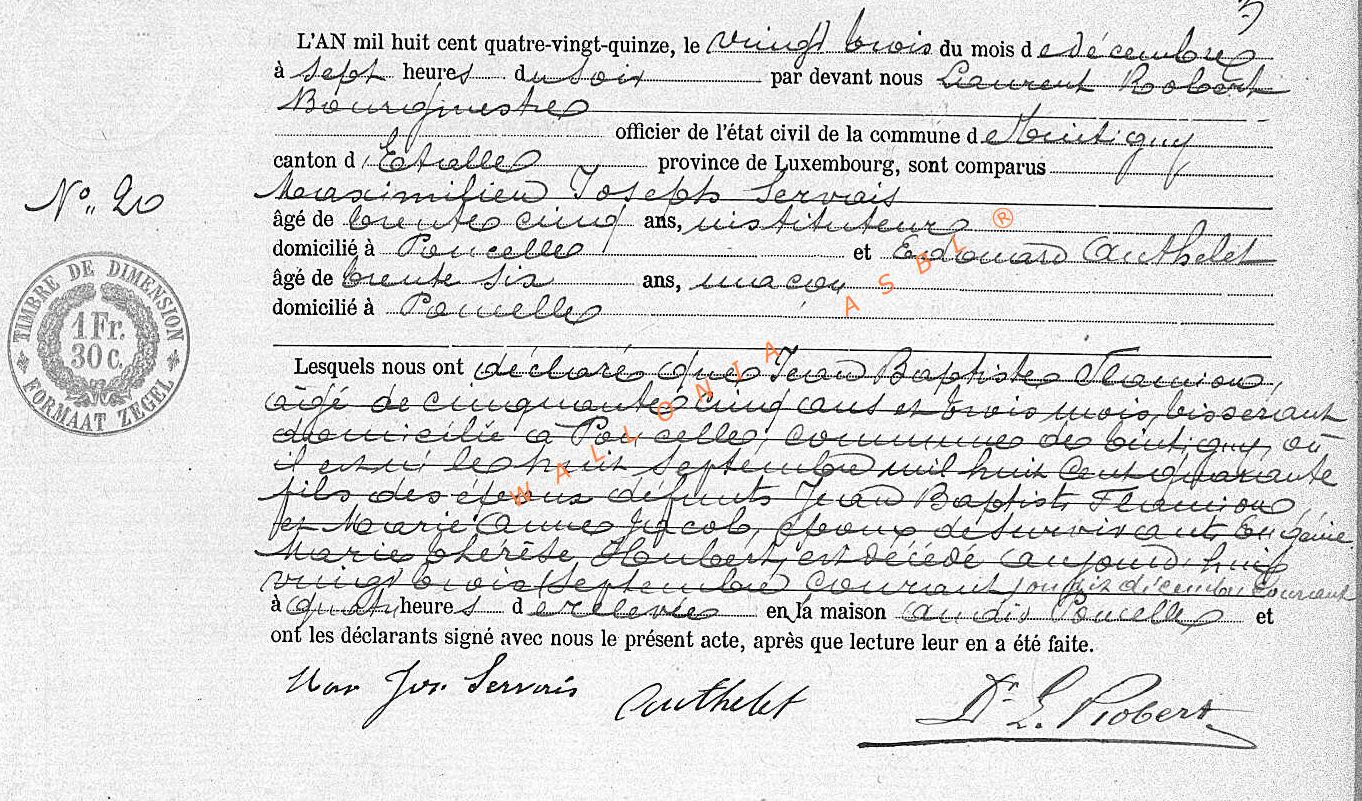 3
L'AN mil huit cent quatre-vingt-quinze, le vingt trois du mois de décembre
à sept heures du soir par devant nous Laurent Robert
Bourgmestre
officier de l'état civil de la commune de Tintigny
canton d'Etalle province de Luxembourg, sont comparus
Maximilien Joseph Servais
N° 20
âgé de trente cinq ans, instituteur
domicilié à Poncelle et Edouard Authelet
âgé de trente six ans, maçon
domicilié à Poncelle
TIMBRE DE DIMENSION
1 Fr.
30 c.
FORMAAT ZEGEL
WALLONIA ASBL ®
Lesquels nous ont déclaré que Jean Baptiste Flamion,
âgé de cinquante cinq ans et trois mois, tisserant
domicilié à Poncelle, commune de Tintigny, où
il est né le huit septembre mil huit cent quarante
fils des époux défunts Jean Baptiste Flamion
et Marie Anne Jacob, époux de survivant Eugénie
Marie Thérèse Houbert, est décédé aujourd'hui
vingt trois septembre courant décembre courant
à quatre heures de relevée en la maison au dit Poncelle et
ont les déclarants signé avec nous le présent acte, après que lecture leur en a été faite.
Max Jos. Servais Authelet Dr L. Robert